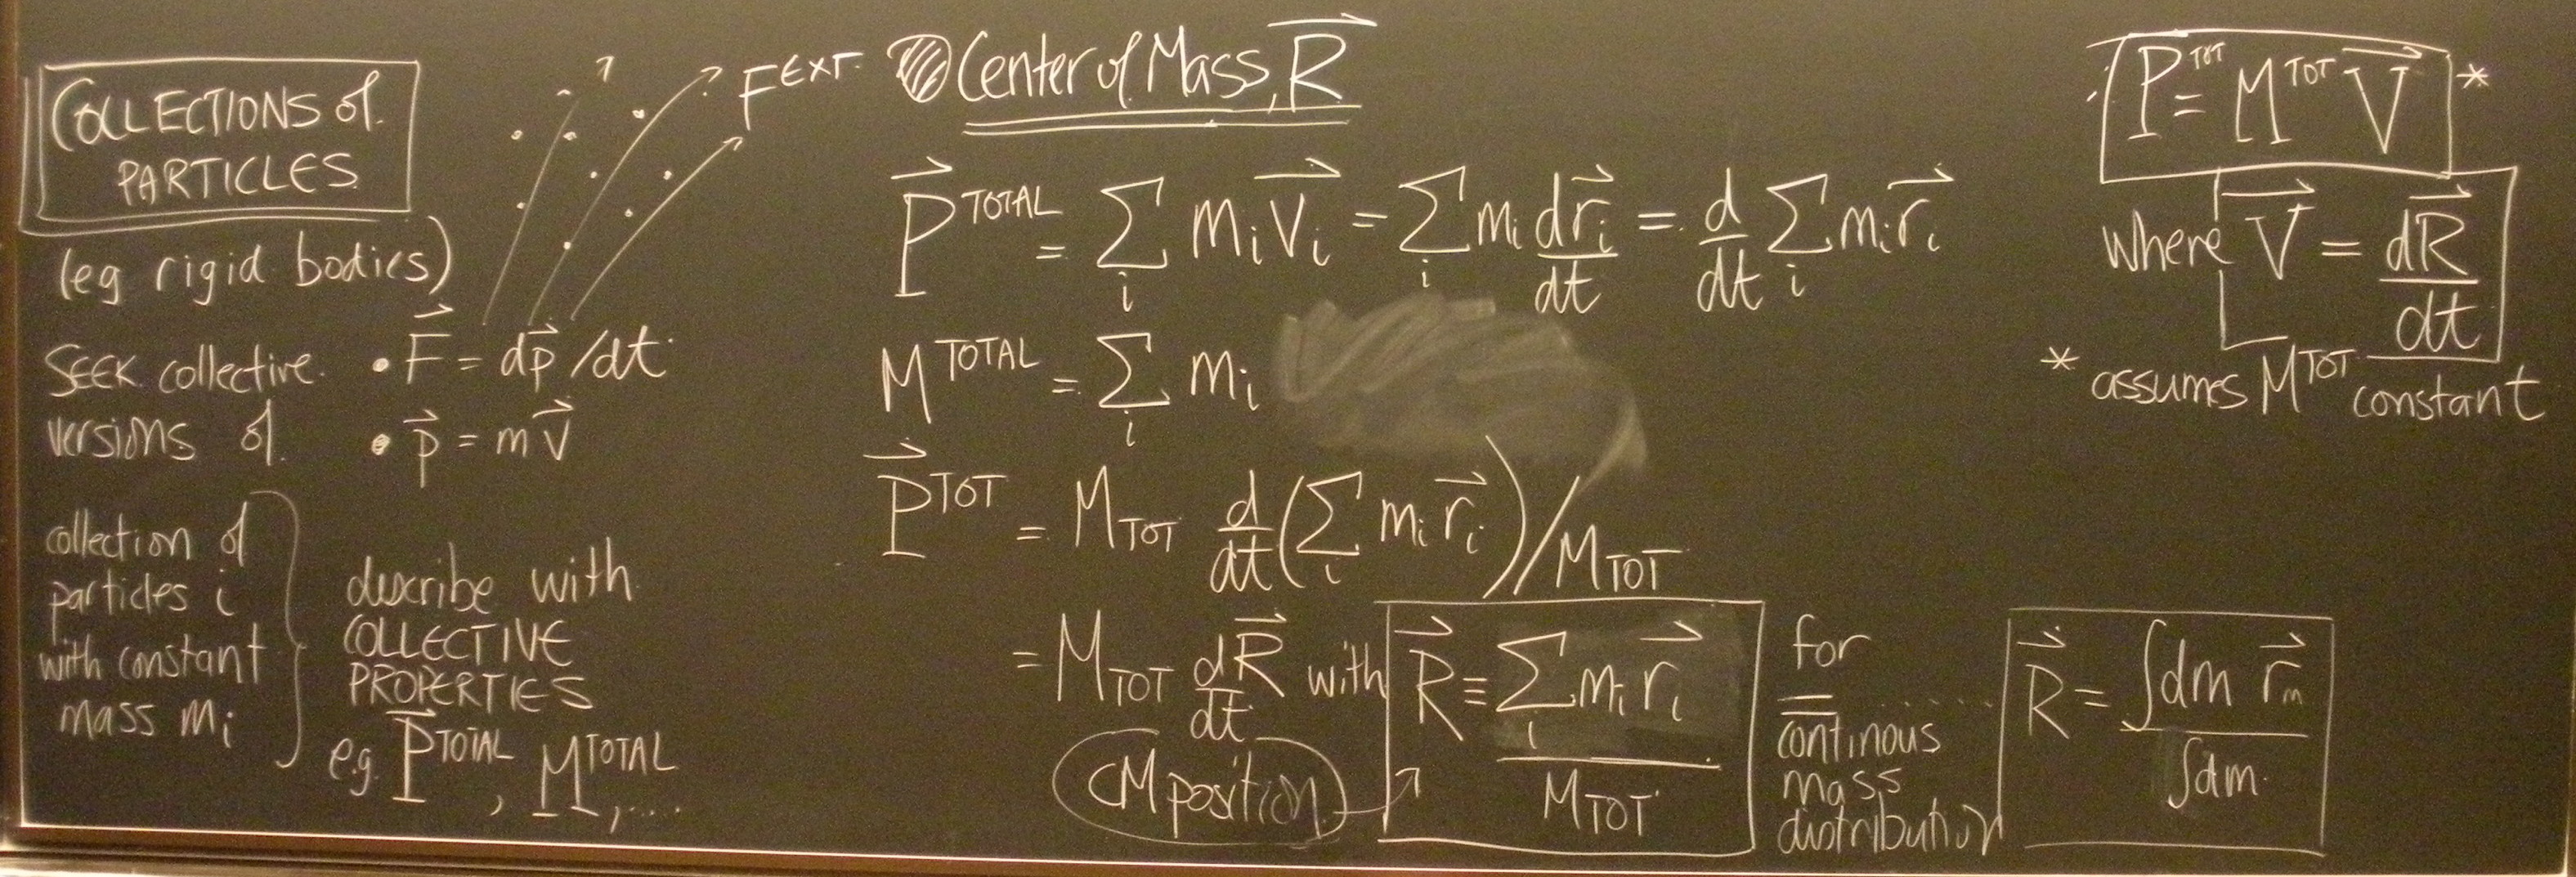 COLLECTIONS of
PARTICLES
(eg rigid bodies)
SEEK collective
versions of
• F⃗ = dp⃗/dt
• p⃗ = mv⃗
collection of
particles i
with constant
mass mᵢ
describe with
COLLECTIVE
PROPERTIES
e.g. P⃗^TOTAL, M^TOTAL, ....
F^EXT
Center of Mass, R⃗
P⃗^TOTAL = Σᵢ mᵢ v⃗ᵢ = Σᵢ mᵢ dr⃗ᵢ/dt = d/dt Σᵢ mᵢ r⃗ᵢ
M^TOTAL = Σᵢ mᵢ
P⃗^TOT = M_TOT d/dt (Σᵢ mᵢ r⃗ᵢ)/M_TOT
= M_TOT dR⃗/dt with R⃗ ≡ Σᵢ mᵢ r⃗ᵢ / M_TOT
CM position
for
continous
mass
distribution
R⃗ = ∫dm r⃗ₘ / ∫dm
P^TOT = M^TOT V⃗ *
where V⃗ = dR⃗/dt
* assumes M^TOT constant